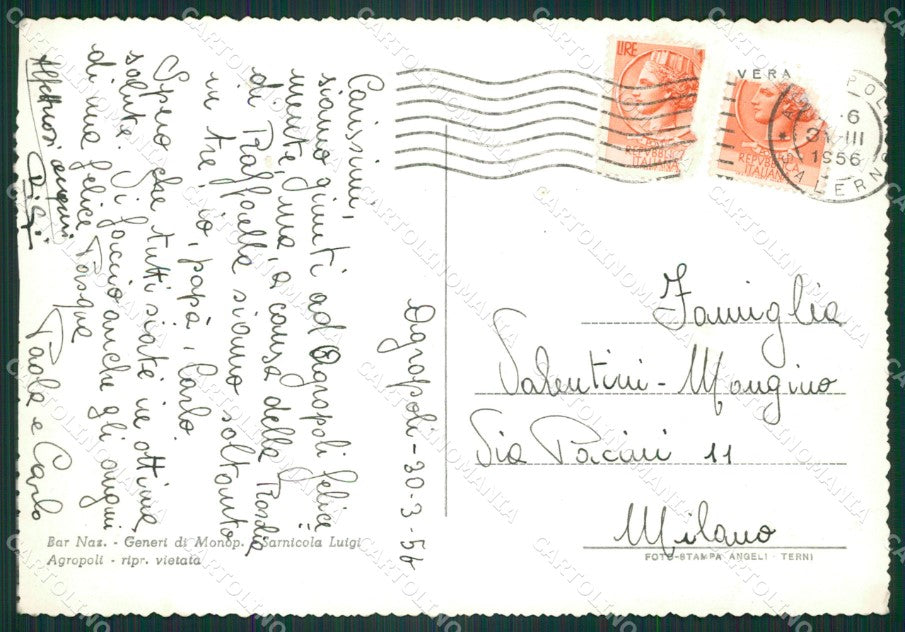 Agropoli - 30-3-56
Carissimi,
siamo giunti ad Agropoli felice
mente, ma, a causa della Rosolia
di Raffaella siamo soltanto
in tre: io, papà, Carlo.
Spero che tutti siate in ottima
salute. Vi faccio anche gli auguri
di una felice Pasqua
Paola e Carlo
Affettuosi auguri
Famiglia
Valentini - Mangino
Via Pacini 11
Milano
LIRE
REPVBBLICA
ITALIANA
REPVBBLICA
ITALIANA
VERA
1956
Bar Naz. - Generi di Monop. - Sarnicola Luigi
Agropoli - ripr. vietata
FOTO-STAMPA ANGELI - TERNI
CARTOLINOMANIA